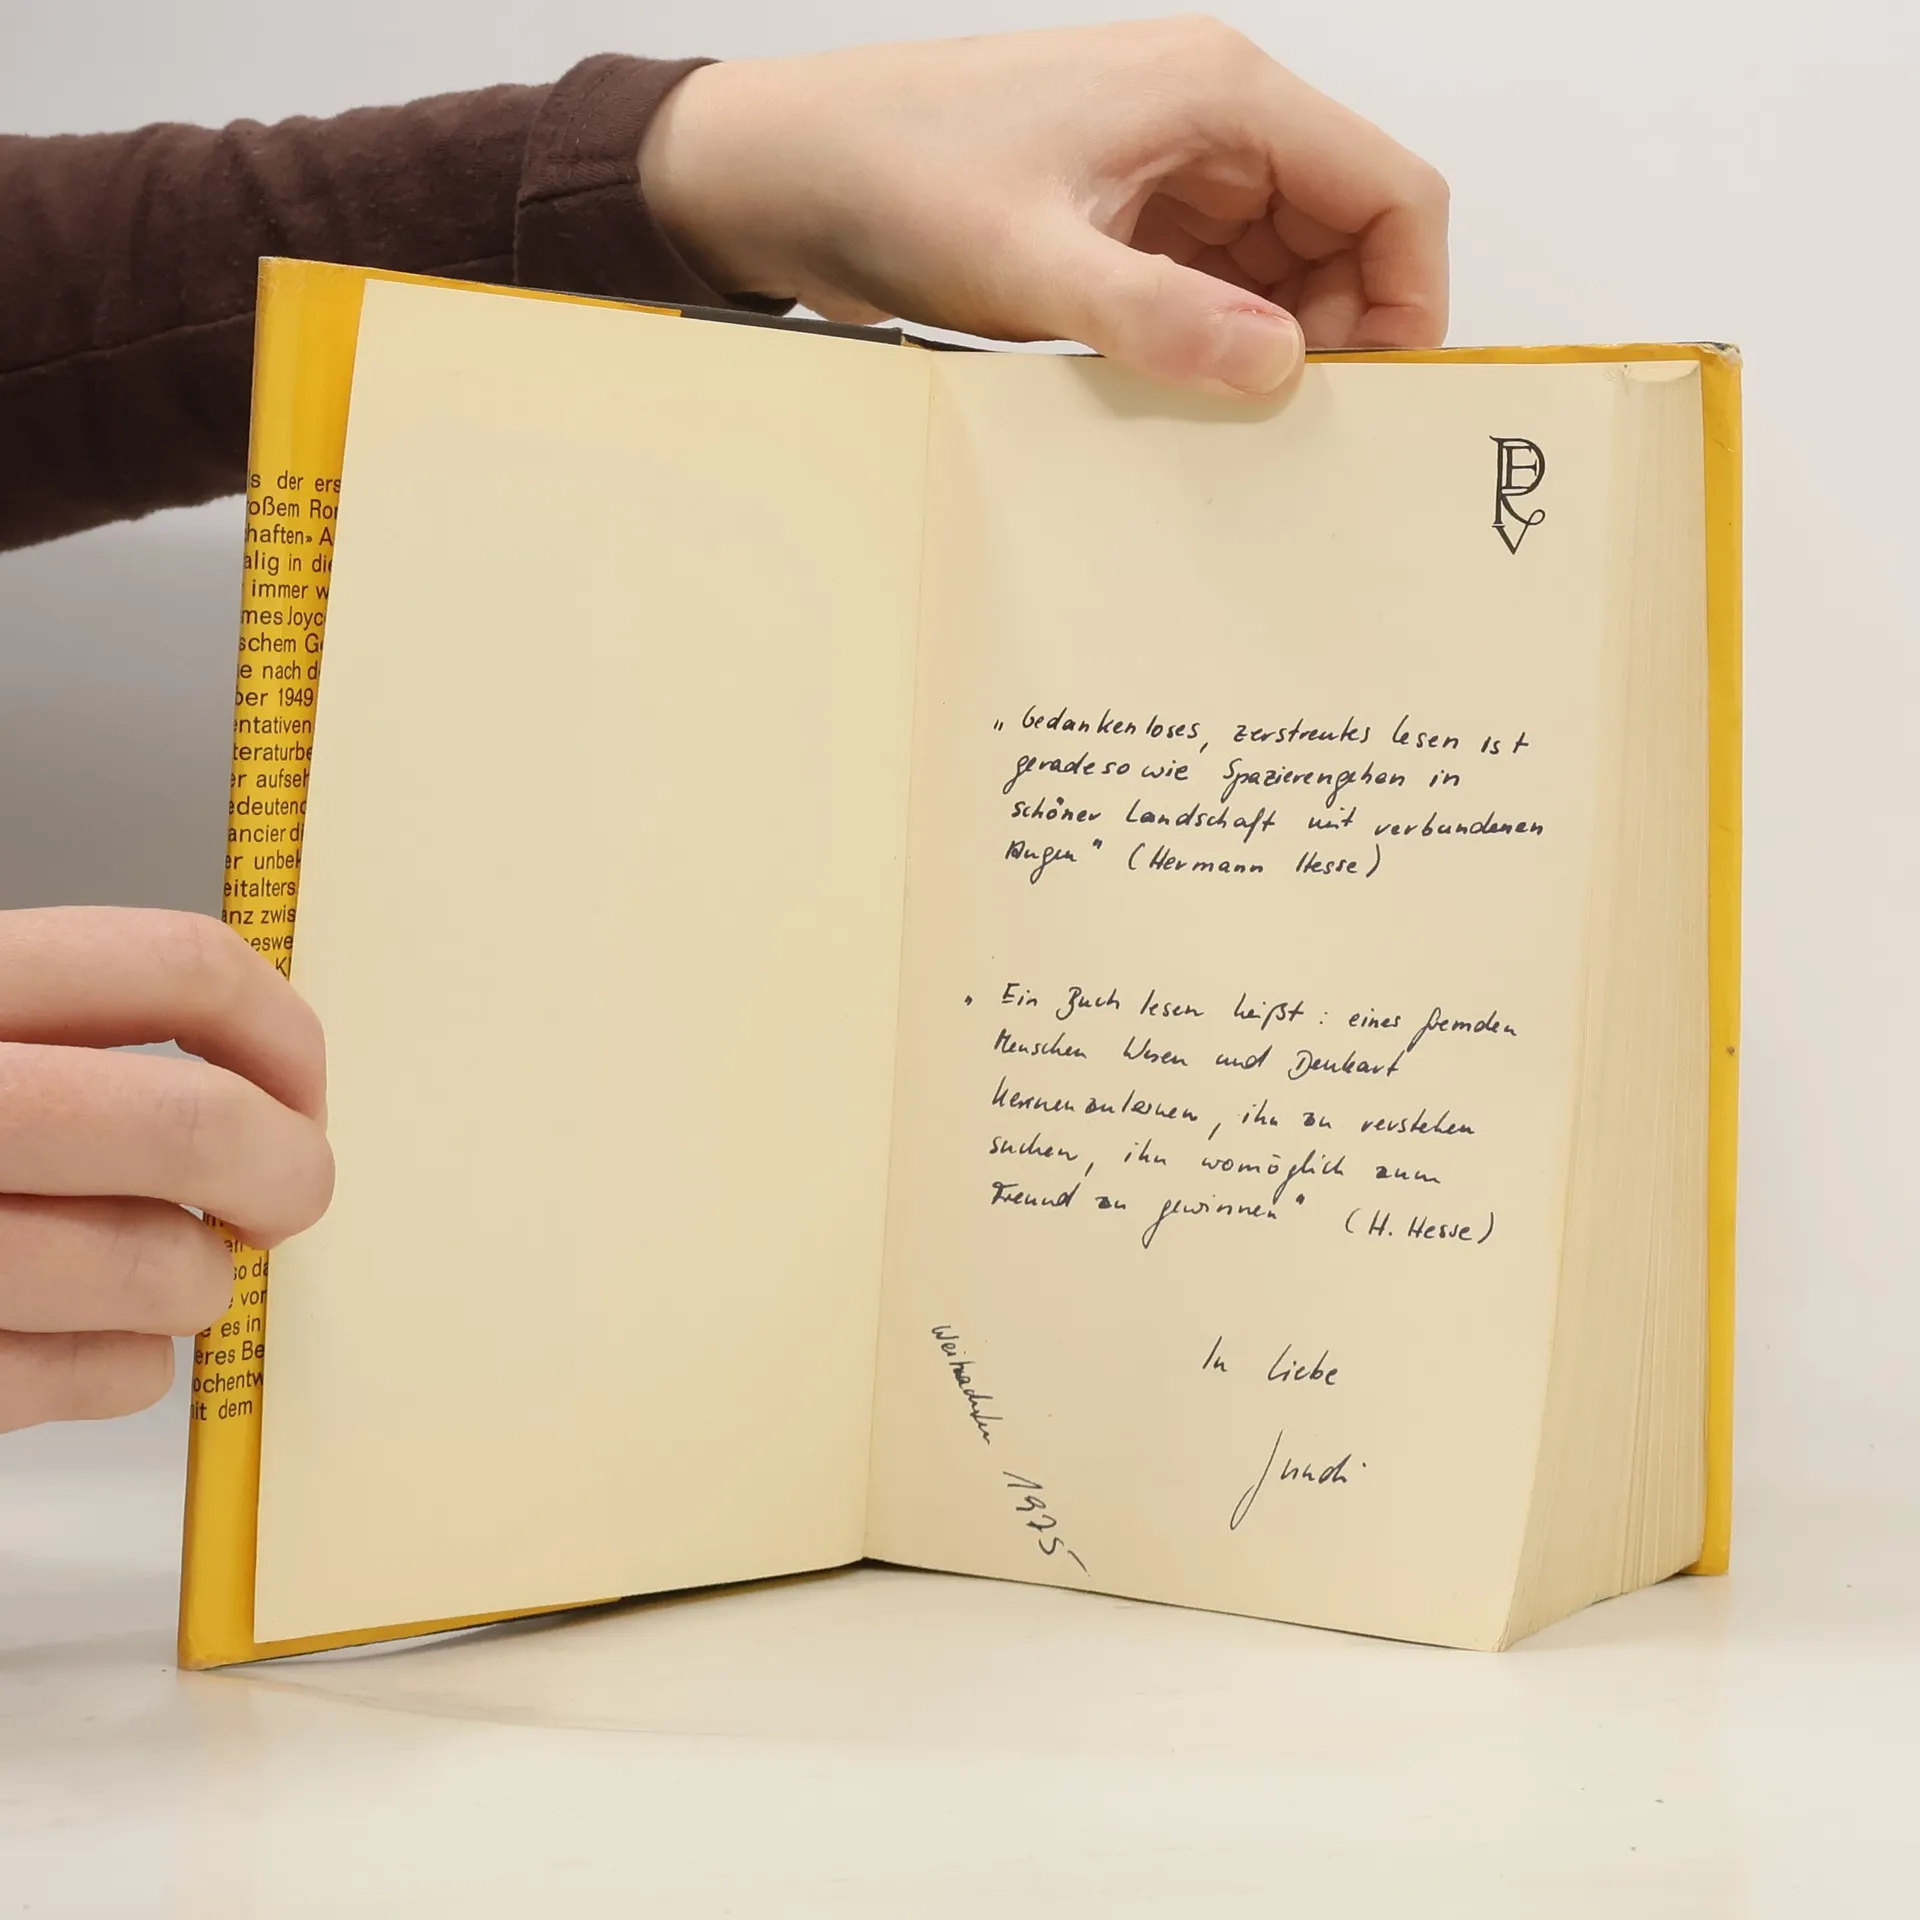 s der ers
oßem Ror
haften» A
alig in die
immer w
mes Joyc
schem Ge
e nach d
ber 1949
entativen
teraturbe
er aufseh
edeutend
ancier di
er unbek
eitalters
anz zwis
eswe
K
en
so da
vor
e es in
eres Be
ochentw
it dem
PERV
„ Gedankenloses, zerstreutes Lesen ist
geradeso wie Spazierengehen in
schöner Landschaft mit verbundenen
Augen" (Hermann Hesse)
„ Ein Buch lesen heißt : eines fremden
Menschen Wesen und Denkart
kennenzulernen, ihn zu verstehen
suchen, ihn womöglich zum
Freund zu gewinnen" (H. Hesse)
In Liebe
Weihnachten 1975